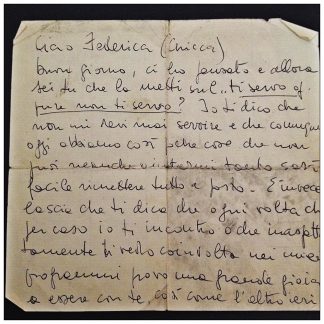 Ciao Federica (Chicca)
buon giorno, ci ho pensato e allora
sei tu che la metti sul.. ti servo op
pure non ti servo? Io ti dico che
non mi devi mai servire e che comunque
oggi abbiamo così che cose che non
puoi neanche tanto così
facile rimettere tutto a posto. E invece
lascia che ti dica che ogni volta che
per caso io ti incontro o che inaspet
tatamente ti vedo coinvolta nei miei
programmi provo una grande gioia
a essere con te, così come l'altro ieri